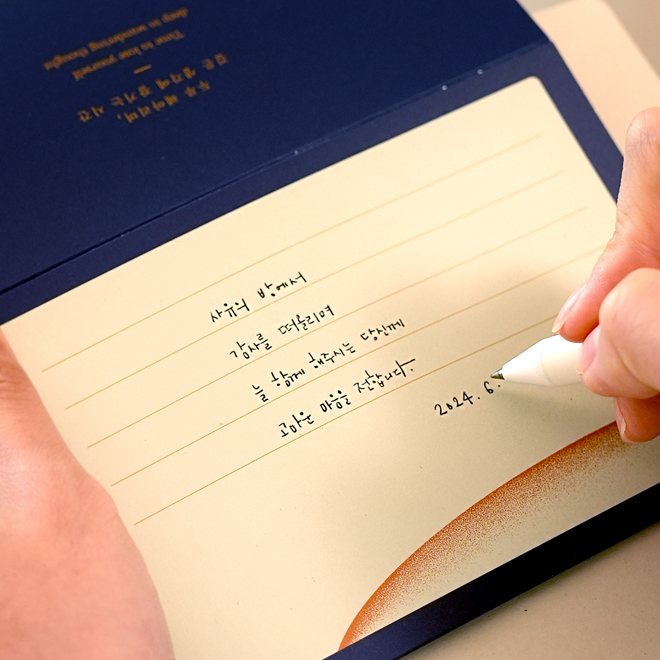 두루 헤아리며,
깊은 생각에 잠기는 시간
Time to lose yourself
deep in wandering thought
사유의 방에서
감사를 떠올리며
늘 함께 해주시는 당신께
고마운 마음을 전합니다.
2024. 6.